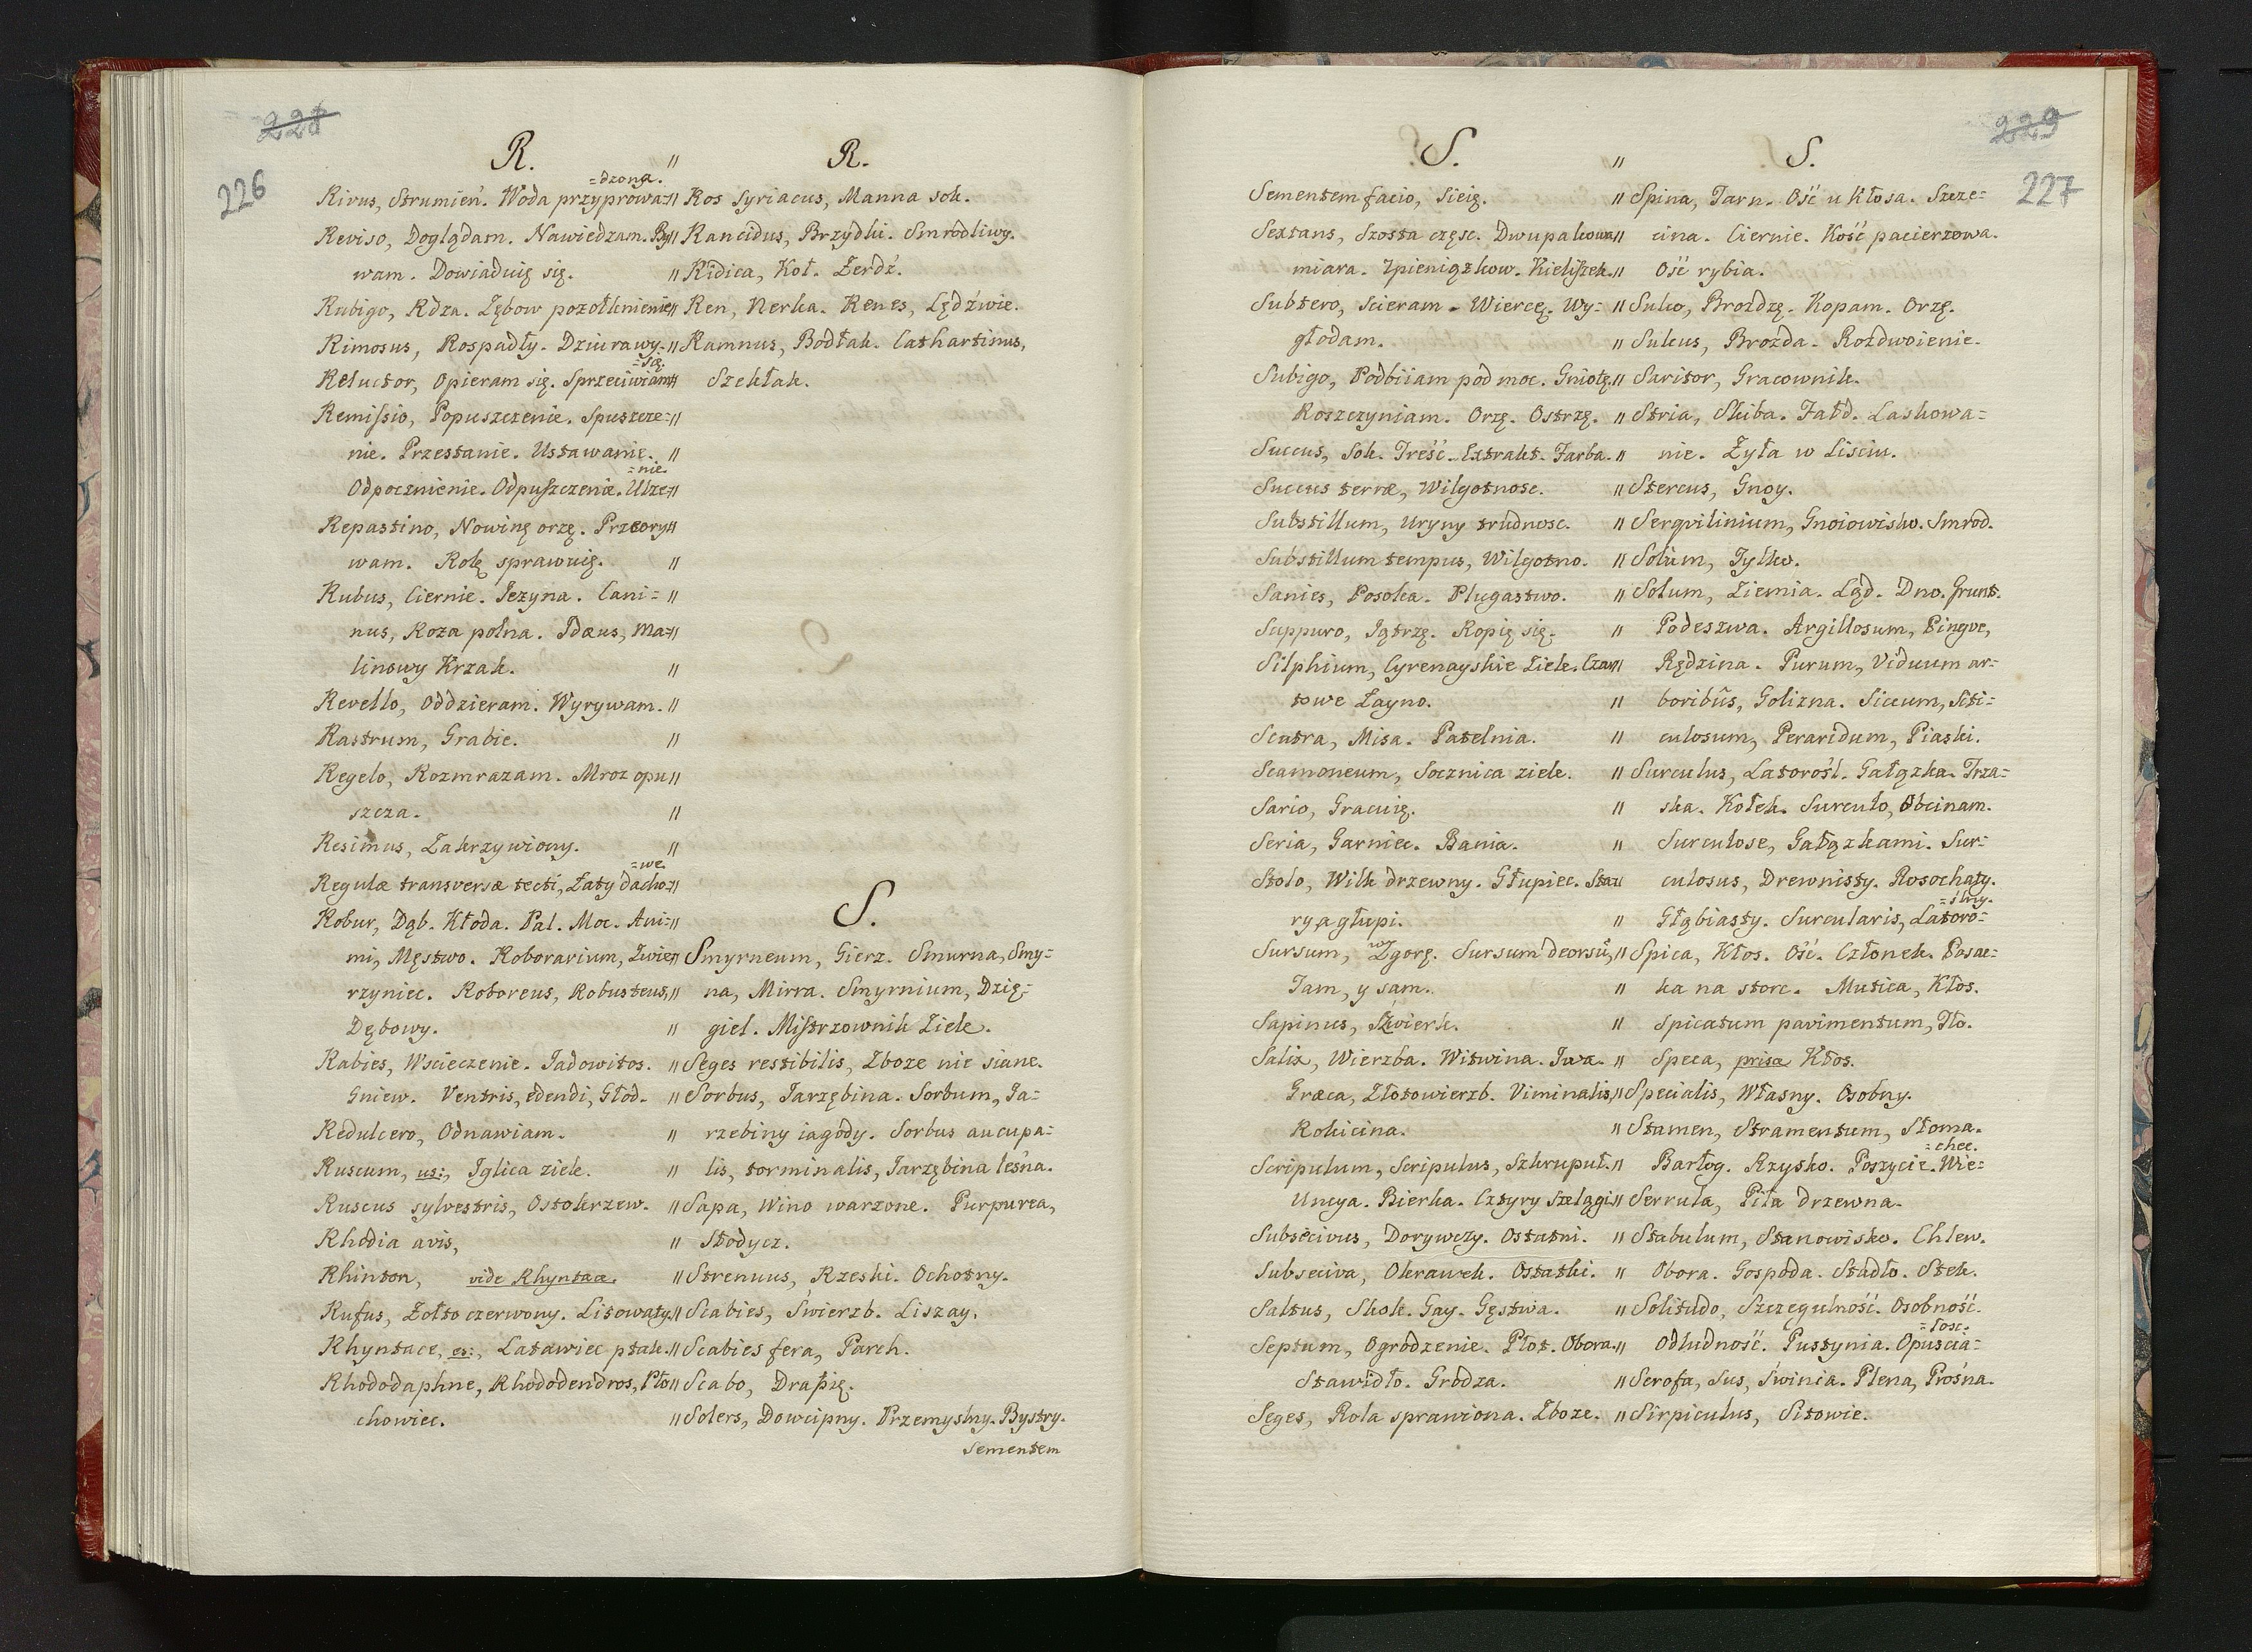 228
226
R.
Rivus, Strumień. Woda przyprowa=dzona.
Reviso, Doglądam. Nawiedzam. By
wam. Dowiaduię się.
Rubigo, Rdza. Zębow pozołknienie
Rimosus, Rospadły. Dziurawy.
Reluctor, Opieram się. Sprzeciwiam=są.
Remissio, Popuszczenie. Spuszcze=
nie. Przestanie. Ustawanie.
Odpocznienie. Odpuszczenie. Ulze=nie.
Repastino, Nowinę orzę. Przeory
wam. Rolę sprawuię.
Rubus, Ciernie. Jezyna. Cani=
nus, Roza polna. Idæus, Ma=
linowy Krzak.
Revello, Oddzieram. Wyrywam.
Rastrum, Grabie.
Regelo, Rozmrazam. Mroz opu
szcza.
Resimus, Zakrzywiony.
Regulæ transversæ tecti, Łaty dacho=we.
Robur, Dąb. Kłoda. Pal. Moc. Ani=
mi, Męstwo. Roborarium, Zwie
rzyniec. Roboreus, Robusteus,
Dębowy.
Rabies, Wscieczenie. Jadowitos.
Gniew. Ventris, edendi, Głod.
Redulcero, Odnawiam.
Ruscum, us:, Iglica ziele.
Ruscus sylvestris, Ostokrzew.
Rhodia avis,
Rhinton, vide Rhyntace.
Rufus, Zołto czerwony. Lisowaty
Rhyntace, es:, Latawiec ptak.
Rhododaphne, Rhododendros, Pło
chowiec.
R.
Ros Syriacus, Manna sok.
Rancidus, Brzydki. Smrodliwy.
Ridica, Koł. Zerdź.
Ren, Nerka. Renes, Lędźwie.
Ramnus, Bodłak. Cathartinus,
Szekłak.
S.
Smyrneum, Gierz. Smurna, Smy=
na, Mirra. Smyrnium, Dzię=
giel. Mistrzownik Ziele.
Seges restibilis, Zboze nie siane.
Sorbus, Jarzębina. Sorbum, Ja=
rzebiny iagody. Sorbus aucupa=
lis, torminalis, Jarzębina leśna.
Sapa, Wino warzone. Purpurea,
Słodycz.
Strenuus, Rzeski. Ochotny.
Scabies, Świerzb. Liszay.
Scabies fera, Parch.
Scabo, Drapię.
Solers, Dowcipny. Przemyslny. Bystry.
Sementem
229
227
S.
Sementem facio, Sieię.
Sextans, Szosta częsc. Dwupalcowa
miara. Zpieniązkow. Kieliszek.
Subtero, Scieram. Wiercę. Wy=
głodam.
Subigo, Podbiiam pod moc. Gniotę.
Roszczyniam. Orzę. Ostrzę.
Succus, Sok. Treść. Extrakt. Farba.
Succus terræ, Wilgotnosc.
Substillum, Uryny trudnosc.
Substillum tempus, Wilgotno.
Sanies, Posoka. Plugastwo.
Suppuro, Iątrzę. Ropię się.
Silphium, Cyrenayskie Ziele. Czar
towe Łayno.
Scutra, Misa. Patelnia.
Scamoneum, Socznica ziele.
Sario, Gracuię.
Seria, Garniec. Bania.
Stolo, Wilk drzewny. Głupiec. Sta
ry a głupi.
Sursum, wZgorę. Sursum deorsū,
Tam, y sam.
Sapinus, Swierk.
Salix, Wierzba. Witwina. Iwa.
Græca, Złotowierzb. Viminalis,
Rokicina.
Scripulum, Scripulus, Szkrupuł.
Uncya. Bierka. Cztyry szelągi
Subsecivus, Dorywczy. Ostatni.
Subseciva, Okrawek. Ostatki.
Saltus, Skok. Gay. Gęstwa.
Septum, Ogrodzenie. Płot. Obora.
Stawidło. Grodza.
Seges, Rola sprawiona. Zboze.
S.
Spina, Tarn. Ość u Kłosa. Szcze=
cina. Ciernie. Kość pacierzowa.
Ość rybia.
Sulco, Brozdzę. Kopam. Orzę.
Sulcus, Brozda. Rozdwoienie.
Saritor, Gracownik.
Stria, Skiba. Fałd. Laskowa=
nie. Zyła w Lisciu.
Stercus, Gnoy.
Serqvilinium, Gnoiowisko. Smrod.
Solùm, Tylko.
Solum, Ziemia. Ląd. Dno. Grunt.
Podeszwa. Argillosum, Pingve,
Rędzina. Purum, Viduum ar=
boribûs, Golizna. Siccum, Siti=
culosum, Peraridum, Piaski.
Surculus, Latorośl. Gałązka. Trza=
ska. Kołek. Surculo, Obcinam.
Surculose, Gałązkami. Sur=
culosus, Drewnisty. Rosochaty.
Głąbiasty. Surcularis, Latoro=slny.
Spica, Kłos. Ość. Członek. Posac=
ka na storc. Mutica, Kłos.
Spicatum pavimentum, Tło.
Speca, prisca Kłos.
Specialis, Własny. Osobny.
Stamen, Stramentum, Słoma.
Barłog. Rzysko. Poszycie. Wie=chec.
Serrula, Piła drzewna.
Stabulum, Stanowisko. Chlew.
Obora. Gospoda. Stadło. Stek.
Solitudo, Szczegulność. Osobność.
Odludność. Pustynia. Opuscia=łosc.
Scrofa, Sus, Świnia. Plena, Prośna.
Sirpiculus, Sitowie.